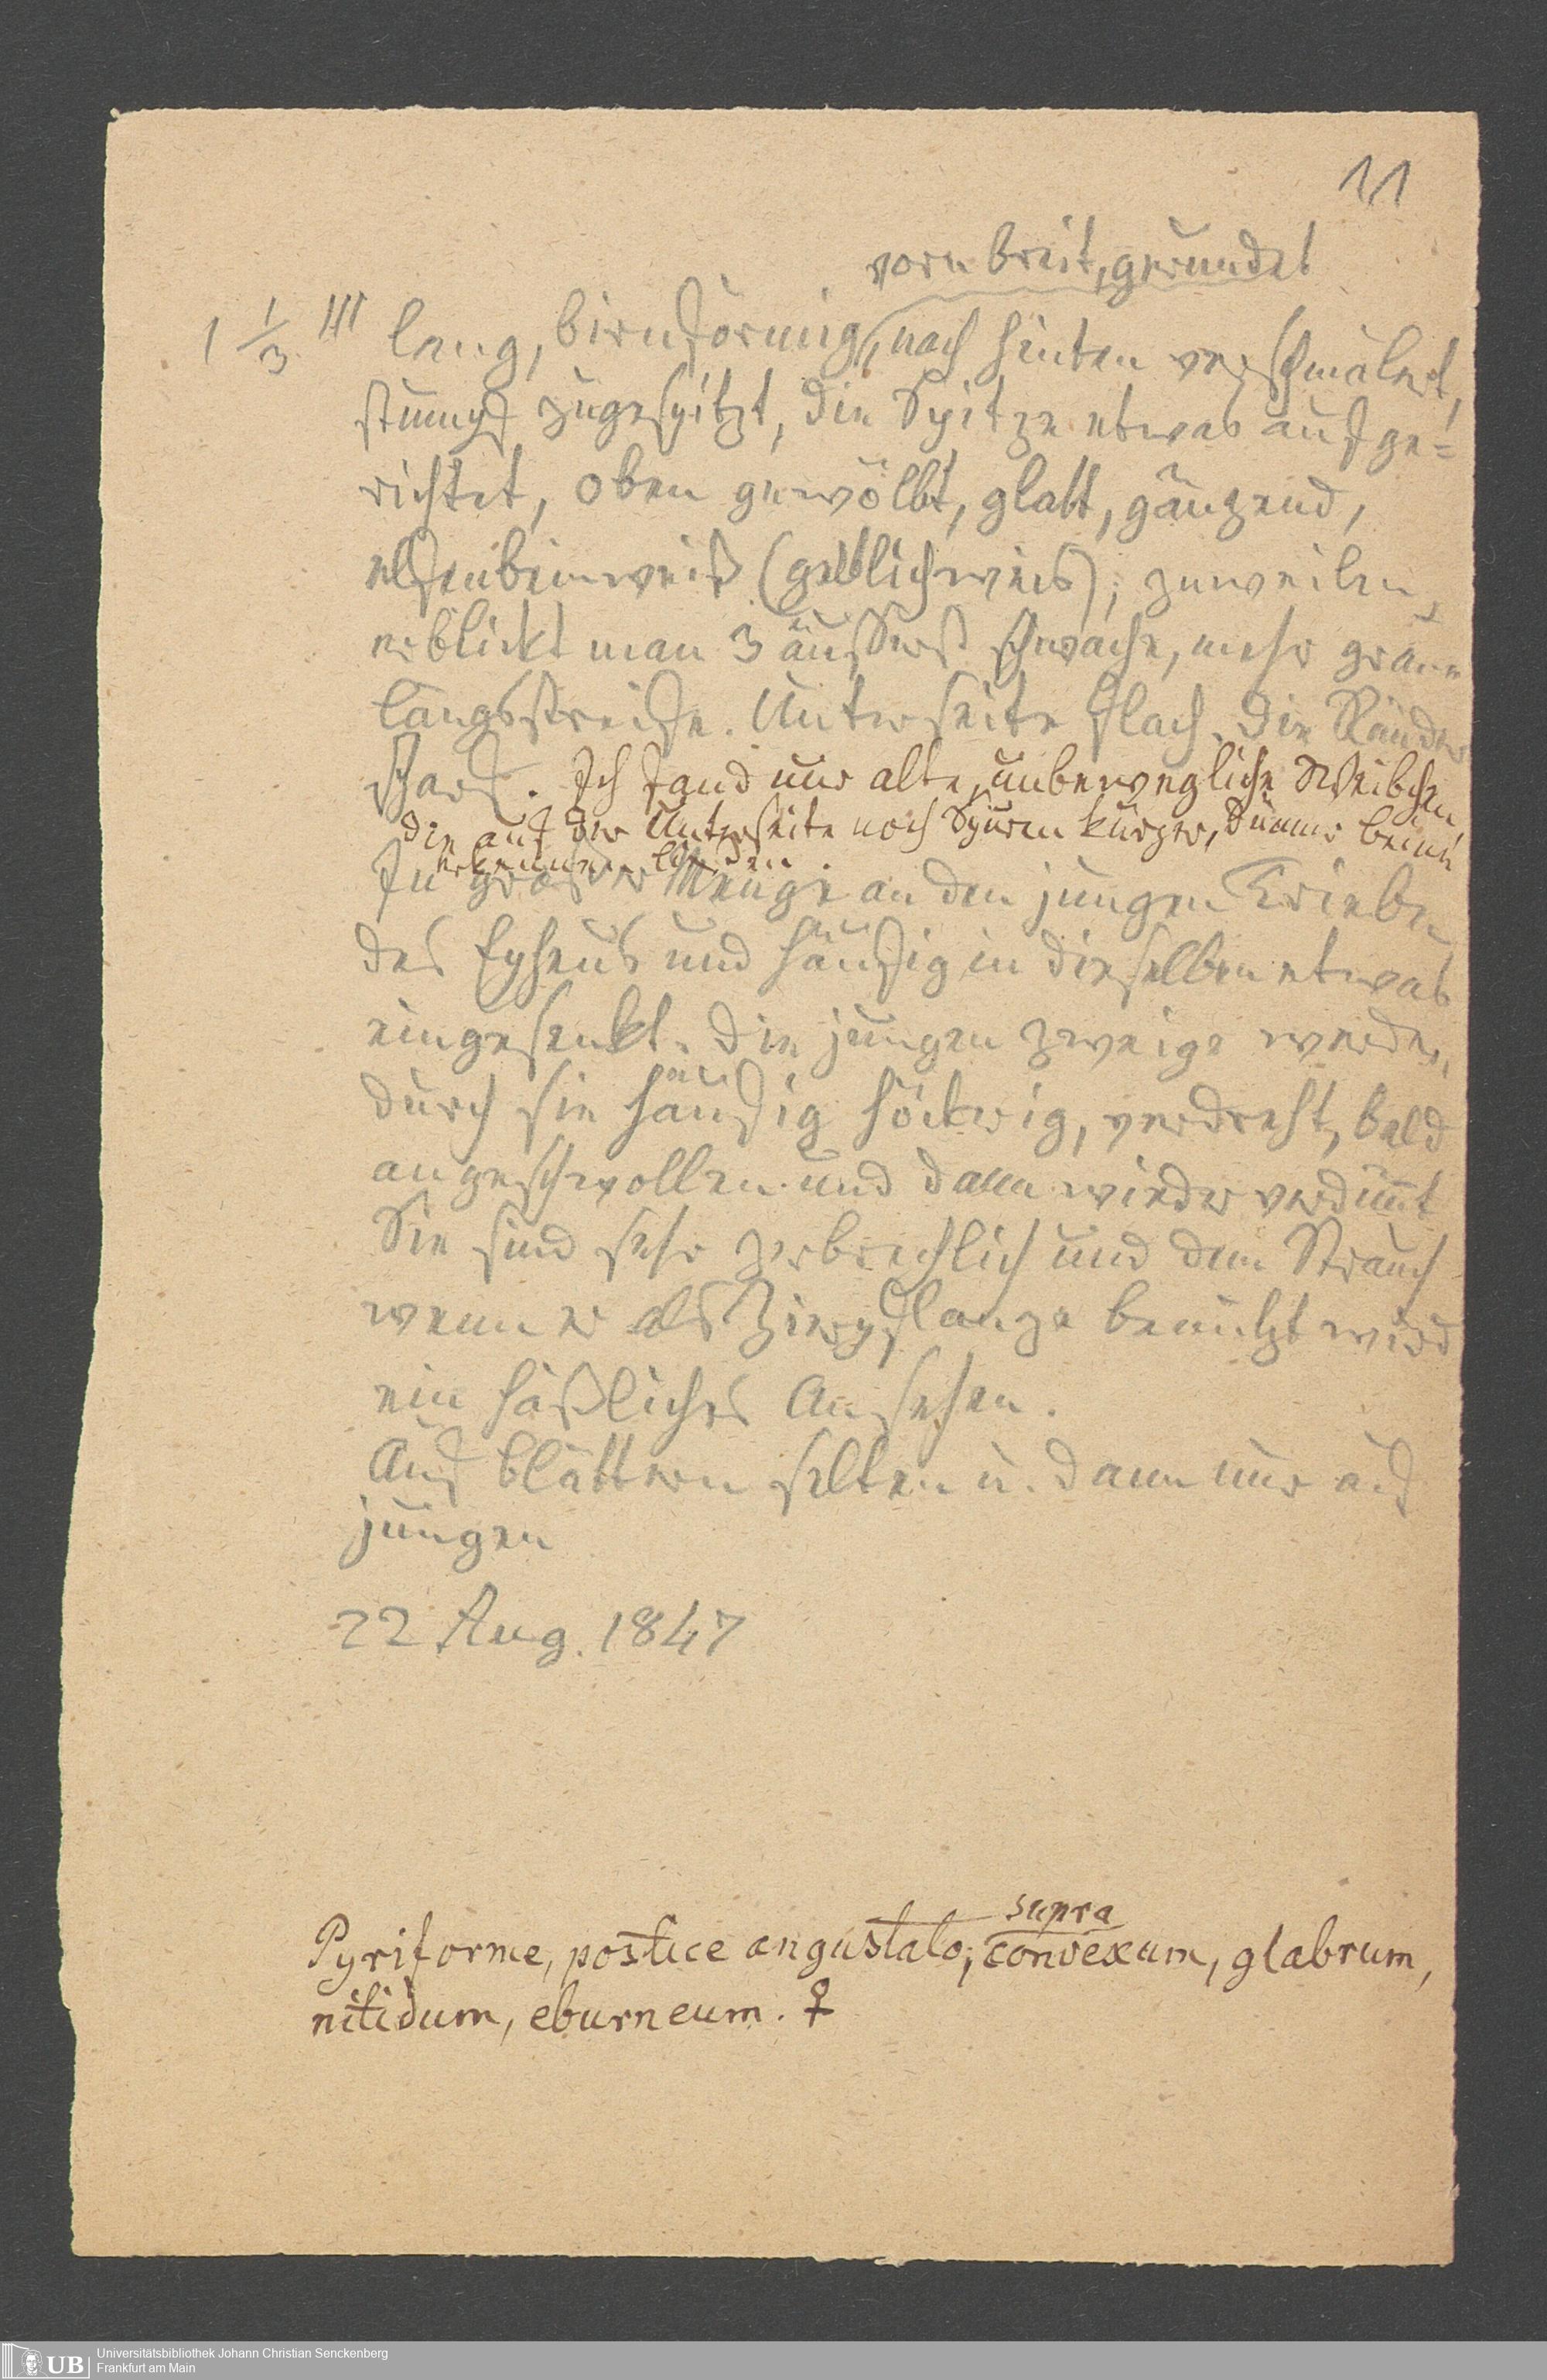 11
vorn breit, gerundet
1 1/3 ''' lang, birnförmig, nach hinten verschmälert,
stumpf zugespitzt, die Spitze etwas aufge=
richtet, oben gewölbt, glatt, gänzend,
elfenbeinweiß (gelblichweis); zuweilen
erblickt man 3 äußerst schwache, mehr graue
Längsstreife. Unterseite flach. Die Ränder
scharf. Ich fand nur alte, unbewegliche Weibchen,
die auf der Unterseite noch Spuren kurzer, dünner Beine
erkennen ließen.
In großer Menge an den jungen Trieben
des Epheus und häufig in dieselben etwas
eingesenkt. Die jungen Zweige werden
durch sie häufig höckerig, verdreht, bald
angeschwollen und dann wieder verdünnt
Sie sind sehr zerbrechlich und dem Strauch
wenn er als Zierpflanze benützt wird
ein häßliches Ansehen.
Auf Blättern selten u. dann nur auf
jungen
22 Aug. 1847
supra
Pyriforme, postice angustato, convexum, glabrum,
nitidum, eburneum. ♀
Universitätsbibliothek Johann Christian Senckenberg
Frankfurt am Main
UB